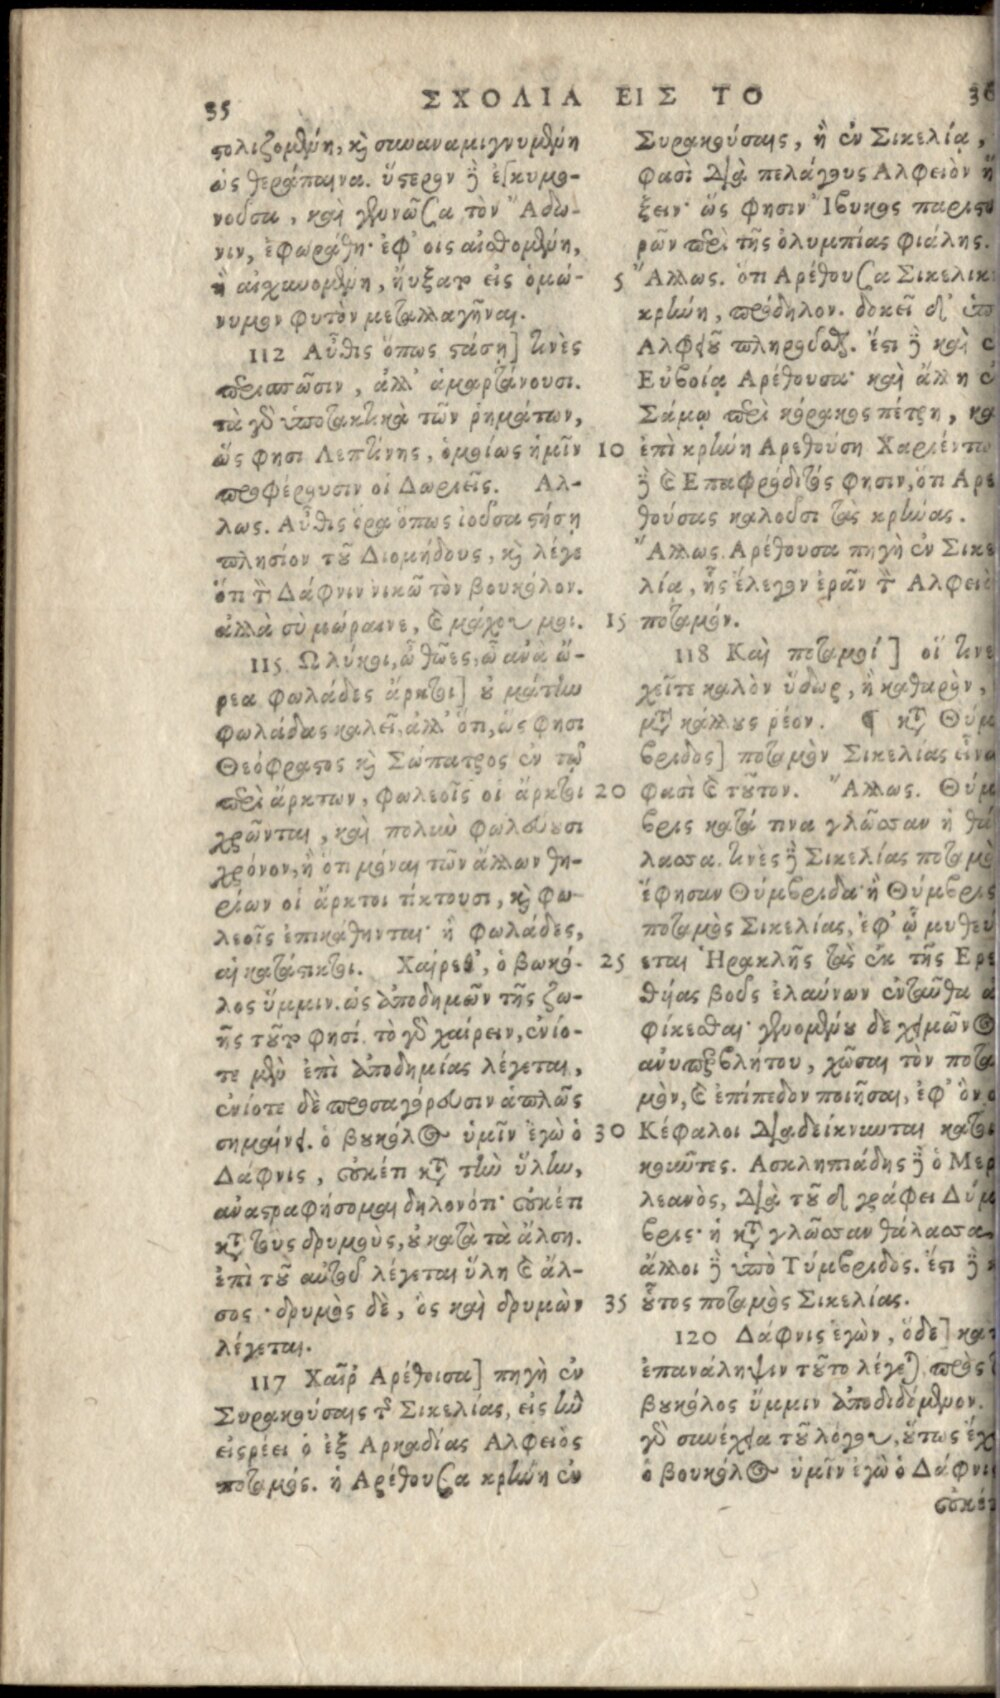 35
ΣΧΟΛΙΑ ΕΙΣ ΤΟ
36
στολιζομένη, καὶ συναναμιγνυμένη
ὡς θεράπαινα. ὕστερον δὲ ἐγκυμο-
νοῦσα, καὶ γεννῶσα τὸν Ἄδω-
νιν, ἐφωράθη· ἐφ' οις αἰσθομένη,
ἢ αἰσχυνομένη, ἤυξατο εἰς ὁμώ-
νυμον φυτὸν μεταλλαγῆναι.
112 Αὖθις ὅπως στάσῃ] τινὲς
περισπῶσιν, ἀλλ' ἁμαρτάνουσι.
τὰ γὰρ ὑποτακτικὰ τῶν ῥημάτων,
ὥς φησι Λεπτίνης, ὁμοίως ἡμῖν
προφέρουσιν οἱ Δωριεῖς. Αλ-
λως. Αὖθις ὅρα ὅπως ἰοῦσα στήσῃ
πλησίον τοῦ Διομήδους, καὶ λέγε
ὅτι τὸν Δάφνιν νικῶ τὸν βουκόλον.
ἀλλὰ σὺ μώραινε, καὶ μάχου μοι.
115 Ω λύκοι, ὦ θῶες, ὦ ἀνὰ ὤ-
ρεα φωλάδες ἄρκτοι] οὐ μάτην
φωλάδας καλεῖ, ἀλλ' ὅτι, ὥς φησι
Θεόφραστος καὶ Σώπατρος ἐν τῷ
περὶ ἄρκτων, φωλεοῖς οἱ ἄρκτοι
χρῶνται, καὶ πολιὺ φωλεύουσι
χρόνον, ἢ ὅτι μόναι τῶν ἄλλων θη-
ρίων οἱ ἄρκτοι τίκτουσι, καὶ φω-
λεοῖς ἐπικάθηνται· ἢ φωλάδες,
αἱ κατάστικτοι. Χαίρεθ', ὁ βωκό-
λος ὔμμιν. ὡς ἀποδημῶν τῆς ζω-
ῆς τοῦτο φησί. τὸ γὰρ χαίρειν, ἐνίο-
τε μὲν ἐπὶ ἀποδημίας λέγεται,
ἐνίοτε δὲ προσαγόρευσιν ἁπλῶς
σημαίνει. ὁ βουκόλος ὑμῖν ἐγὼ ὁ
Δάφνις, οὐκέτι κατὰ τὴν ὕλην,
ἀναστραφήσομαι δηλονότι· οὐκέτι
κατὰ τοὺς δρυμοὺς, οὐ κατὰ τὰ ἄλση.
ἐπὶ τοῦ αὐτοῦ λέγεται ὕλη καὶ ἄλ-
σος· δρυμὸς δὲ, ὁς καὶ δρυμὼν
λέγεται.
117 Χαῖρ' Αρέθοισα] πηγὴ ἐν
Συρακούσαις τῆς Σικελίας, εἰς ἣν
εἰςρέει ὁ ἐξ Αρκαδίας Αλφειὸς
ποταμός. ἡ Αρέθουσα κρήνη ἐν
5
10
15
20
25
30
35
Συρακούσαις, ἢ ἐν Σικελίᾳ,
φασὶ διὰ πελάγους Αλφειὸν ἥ
ξειν· ὥς φησιν Ἴβυκος παριστο
ρῶν περὶ τῆς ὀλυμπίας φιάλης.
Ἄλλως. ὅτι Αρέθουσα Σικελικ
κρήνη, πρόδηλον. δοκεῖ δ' ὑπὸ
Αλφειοῦ πληροῦσθαι. ἔστι δὲ καὶ
Εὐβοίᾳ Αρέθουσα· καὶ ἄλλη
Σάμῳ περὶ κόρακος πέτρῃ,
ἐπὶ κρήνη Αρεθούσῃ Χαριέντω
δὲ καὶ Επαφρόδιτός φησιν, ὅτι Αρε
θούσας καλοῦσι τὰς κρήνας.
Ἄλλως. Αρέθουσα πηγὴ ἐν Σικε
λία, ἧς ἔλεγον ἐρᾶν τὸν Αλφειὸ
ποταμόν.
118 Καὶ ποταμοί] οἵ τινε
χεῖτε καλὸν ὕδωρ, ἢ καθαρὸν,
μετὰ κάλλους ῥέον. ¶ κατὰ Θύμ
βριδος] ποταμὸν Σικελίας εἶνα
φασὶ καὶ τοῦτον. Ἄλλως. Θύμ
βρις κατά τινα γλῶσσαν ἡ θά
λασσα. τινὲς δὲ Σικελίας ποταμὸ
ἔφησαν Θύμβριδα· ἢ Θύμβρις
ποταμὸς Σικελίας, ἐφ' ᾧ μυθεύ
εται Ἡρακλῆς τὰς ἐκ τῆς Ερε
θήας βοῦς ἐλαύνων ἐνταῦθα ἀ
φίκεσθαι· γενομένου δὲ χειμῶνος
ἀνυπερβλήτου, χῶσαι τὸν ποτα
μὸν, καὶ ἐπίπεδον ποιῆσαι, ἐφ' ὃν
Κέφαλοι διαδείκνυνται κατοι
κοιῶτες. Ασκληπιάδης δὲ ὁ Μερ
λεανὸς, διὰ τοῦ δ γράφει Δύμ
βρις· ἡ κατὰ γλῶσσαν θάλασσα.
ἄλλοι δὲ ὑπὸ Τύμβριδος. ἔστι δὲ
οὗτος ποταμὸς Σικελίας.
120 Δάφνις ἐγὼν, ὅδε] κατ
ἐπανάληψιν τοῦτο λέγεται πρὸς
βουκόλος ὔμμιν ἀποδιδόμενον.
γὰρ συνέχεια τοῦ λόγου, οὕτως ἔχ
ὁ βουκόλος ὑμῖν ἐγὼ ὁ Δάφνις
οὐκέτ